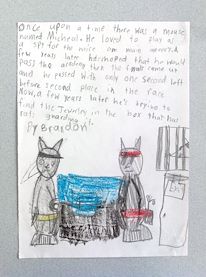 Once upon a time there was a mouse
named Micheal. He loved to play as
a spy for the mice on main
few years later he hoped that he would
pass two academy then the finals came up
and he passed with only one second left
before second place in the race
Now, a few years later he's trying to
find the Jewelry in the box that has
cats guarding it.
By Brandon!